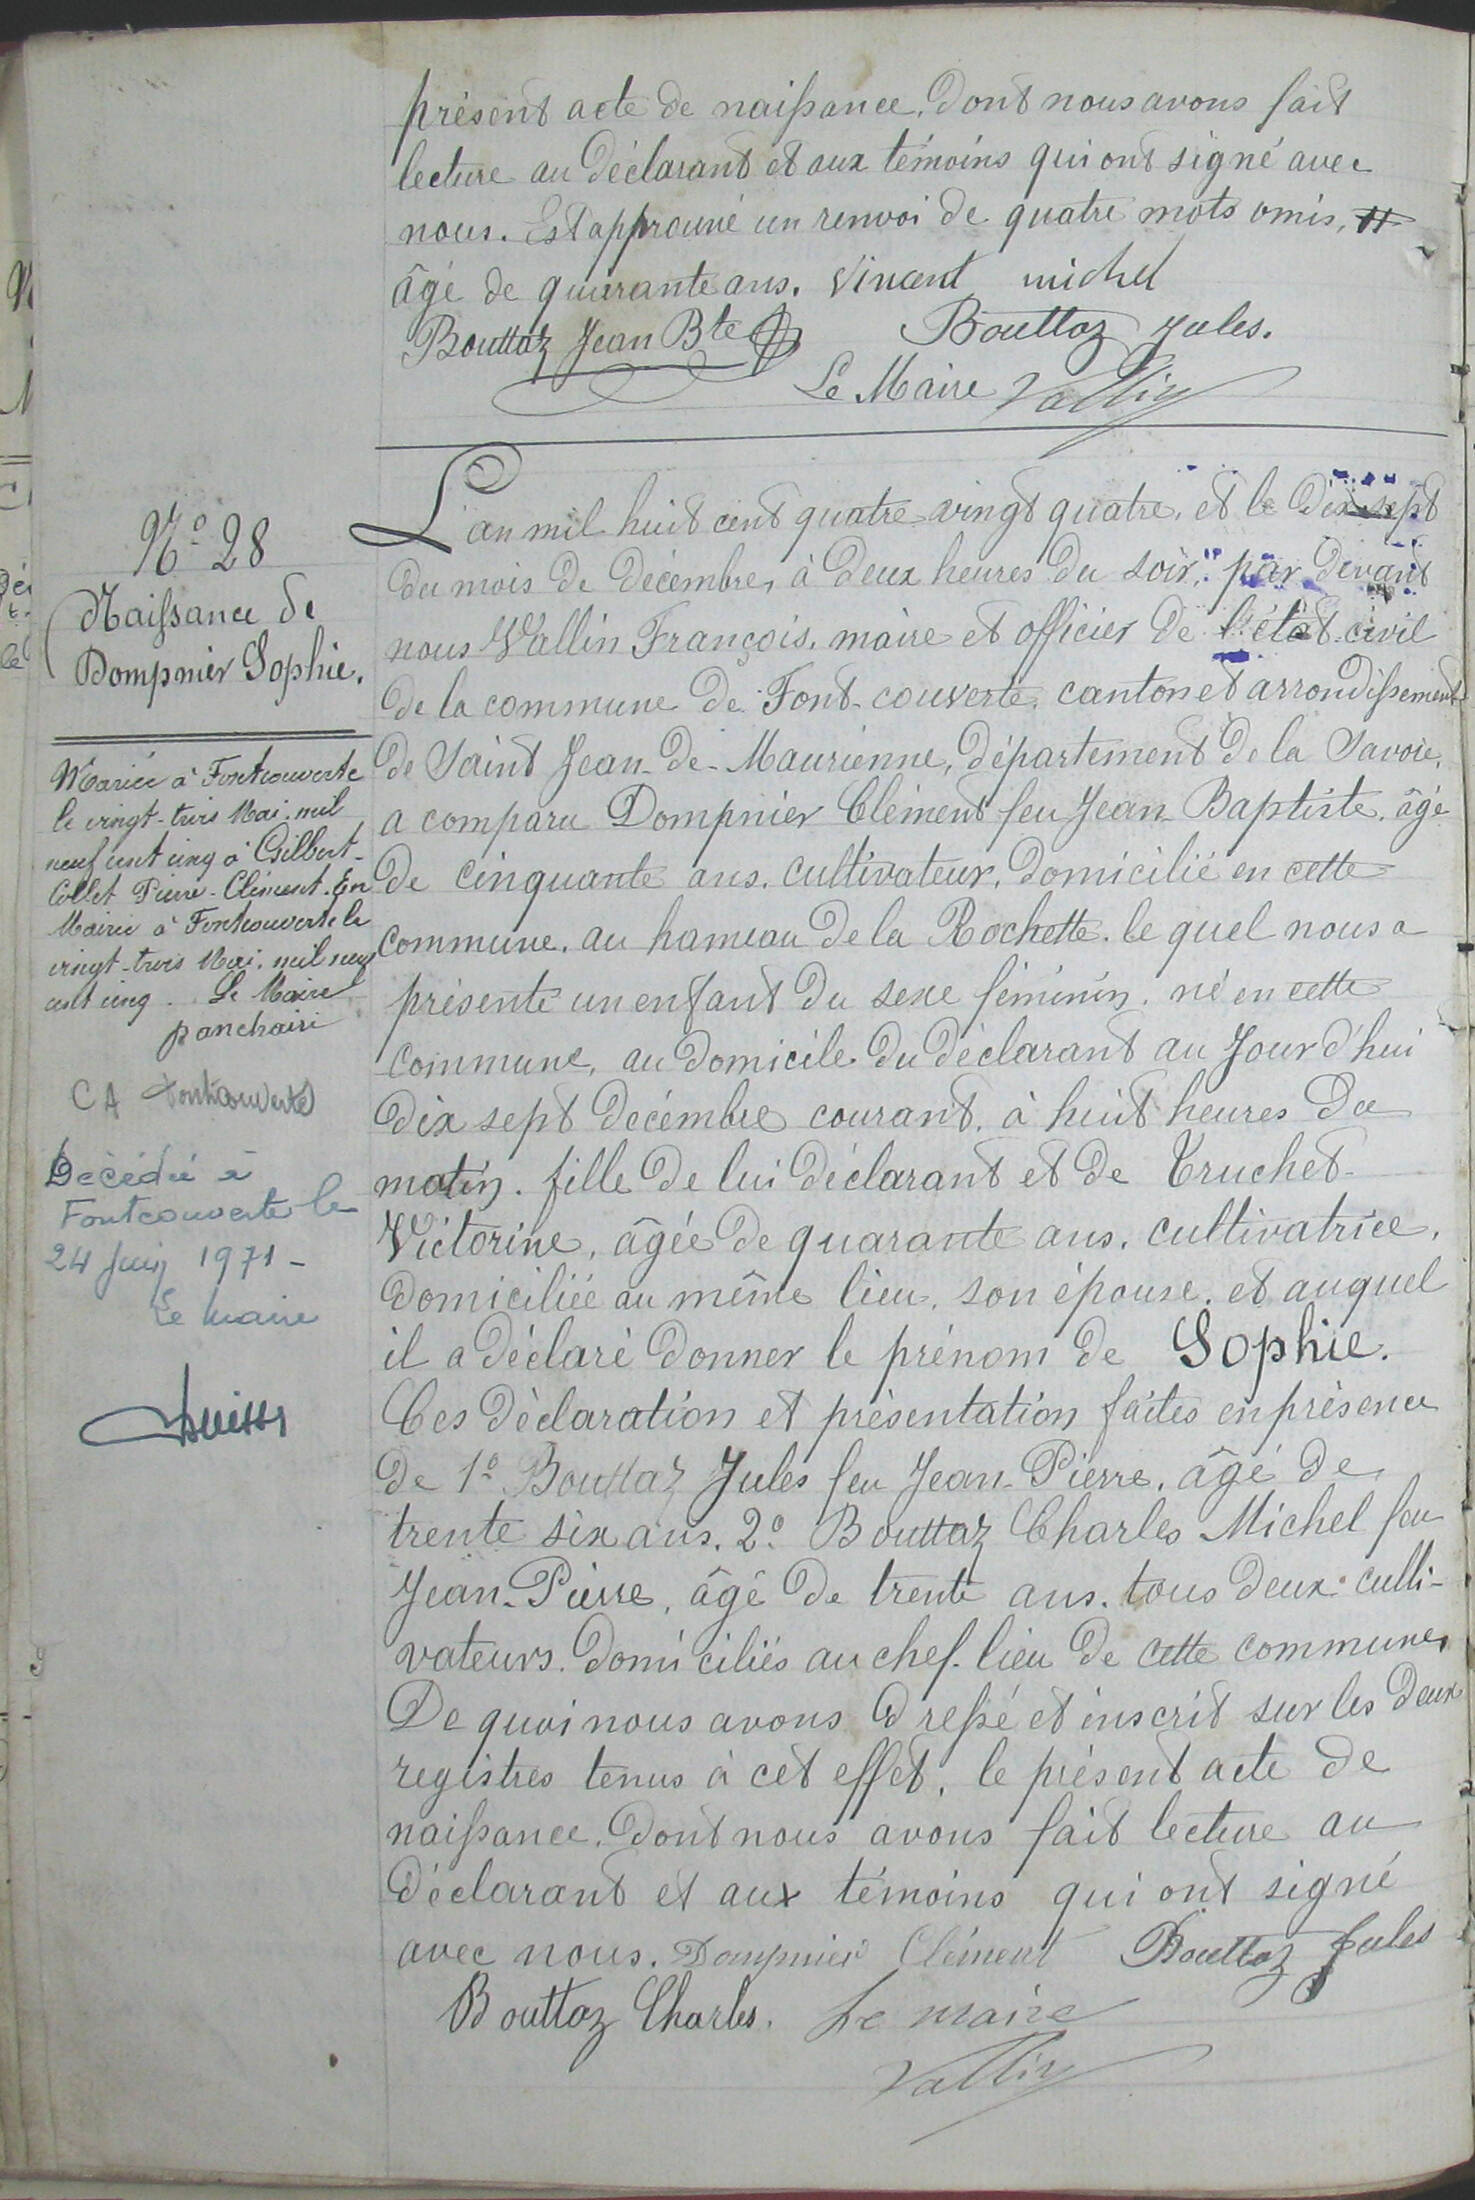 présent acte de naissance, dont nous avons fait
lecture au déclarant et aux témoins qui ont signé avec
nous. Est approuvé un renvoi de quatre mots omis,
âgé de quarante ans. Vincent michel
Bouttaz Jean Bte Bouttaz Jules.
Le Maire Vallin
L'an mil huit cent quatre-vingt quatre, et le dix-sept
du mois de décembre, à deux heures du soir, par devant
nous Vallin François, maire et officier de l'état-civil
de la commune de Font-couverte, canton et arrondissement
de Saint Jean-de-Maurienne, département de la Savoie,
a comparu Dompnier Clément feu Jean-Baptiste, âgé
de cinquante ans, cultivateur, domicilié en cette
commune, au hameau de la Rochette, le quel nous a
présenté un enfant du sexe féminin, né en cette
commune, au domicile du déclarant au Jour d'hui
dix sept décembre courant, à huit heures du
matin, fille de lui déclarant et de Truchet
Victorine, âgée de quarante ans, cultivatrice,
domiciliée au même lieu, son épouse, et auquel
il a déclaré donner le prénom de Sophie.
Ces déclaration et présentation faites en présence
de 1º Bouttaz Jules feu Jean-Pierre, âgé de
trente six ans, 2º Bouttaz Charles Michel feu
Jean-Pierre, âgé de trente ans, tous deux culti-
vateurs, domiciliés au chef-lieu de cette commune,
De quoi nous avons dressé et inscrit sur les deux
registres tenus à cet effet, le présent acte de
naissance, dont nous avons fait lecture au
déclarant et aux témoins qui ont signé
avec nous. Dompnier Clément Bouttaz Jules
Bouttaz Charles. Le maire
Vallin
Nº 28
Naissance de
Dompnier Sophie.
Mariée à Fontcouverte
le vingt-trois Mai mil
neuf cent cinq à Gilbert-
Collet Pierre-Clément. En
Mairie à Fontcouverte le
vingt-trois Mai, mil neuf
cent cinq. Le Maire
CA Fontcouverte
Décédée à
Fontcouverte le
24 Juin 1971 -
Le Maire